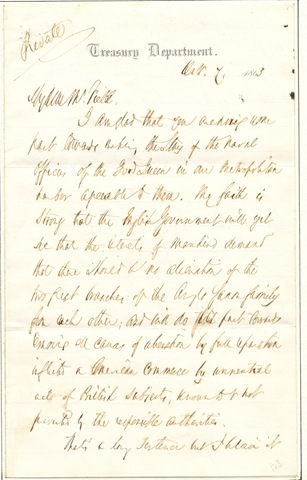 Private
Treasury Department.
Oct. 7, 1863
My dear Mr.
I am glad that you are doing your
part towards making the stay of the naval
Officers of the Good Queen in our Metropolitan
harbor agreeable to them. My faith is
strong that the English Government will yet
see that the interests of mankind demand
that there should be no alienation of the
two great branches of the Anglo Saxon family
from each other; and will do its part towards
removing all causes of alienation by full reparation
inflicted on American commerce by unneutral
acts of British subjects, known to & not
prevented by the responsible authorities.
That's a long sentence but I believe it